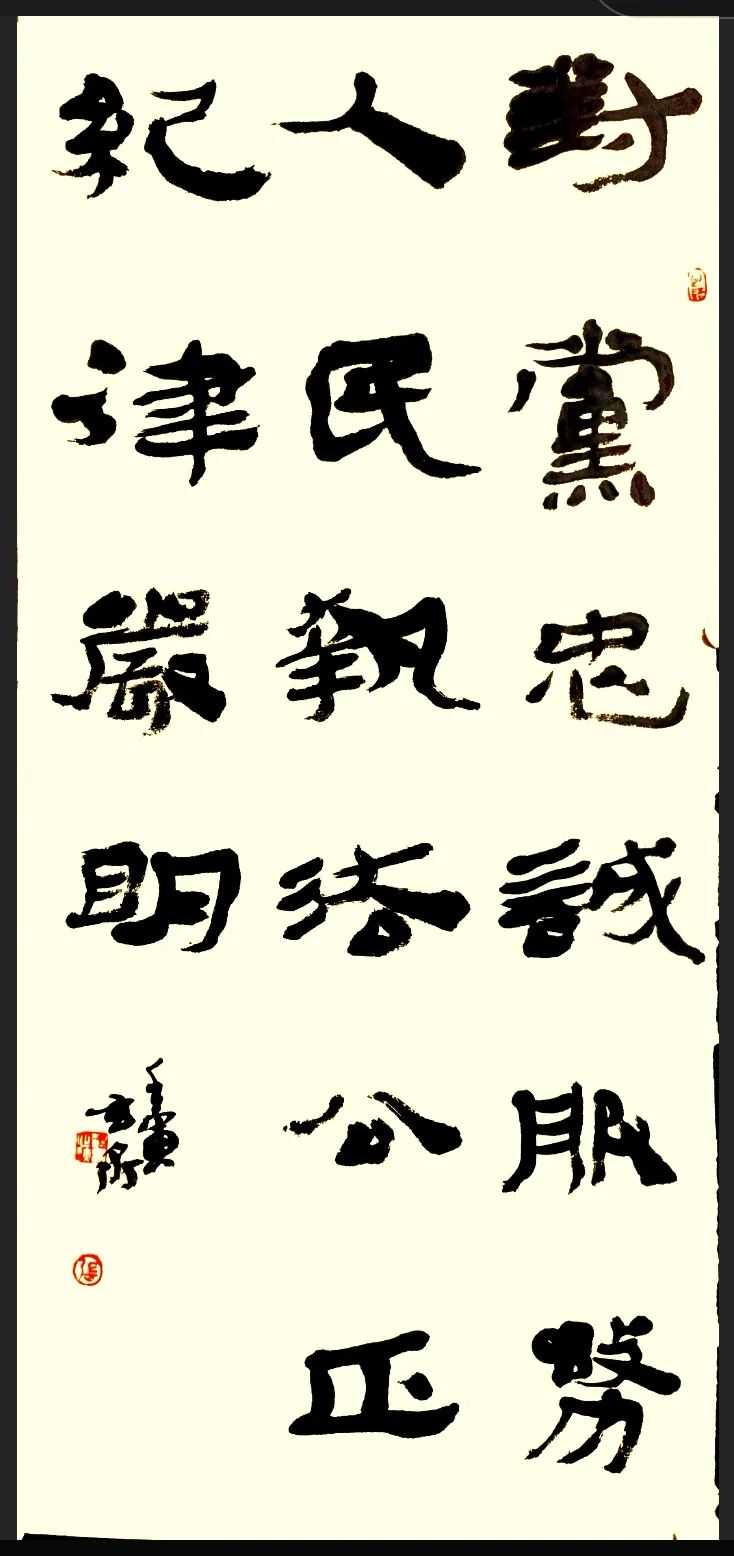 對黨忠誠服務
人民執法公正
紀律嚴明
壬寅